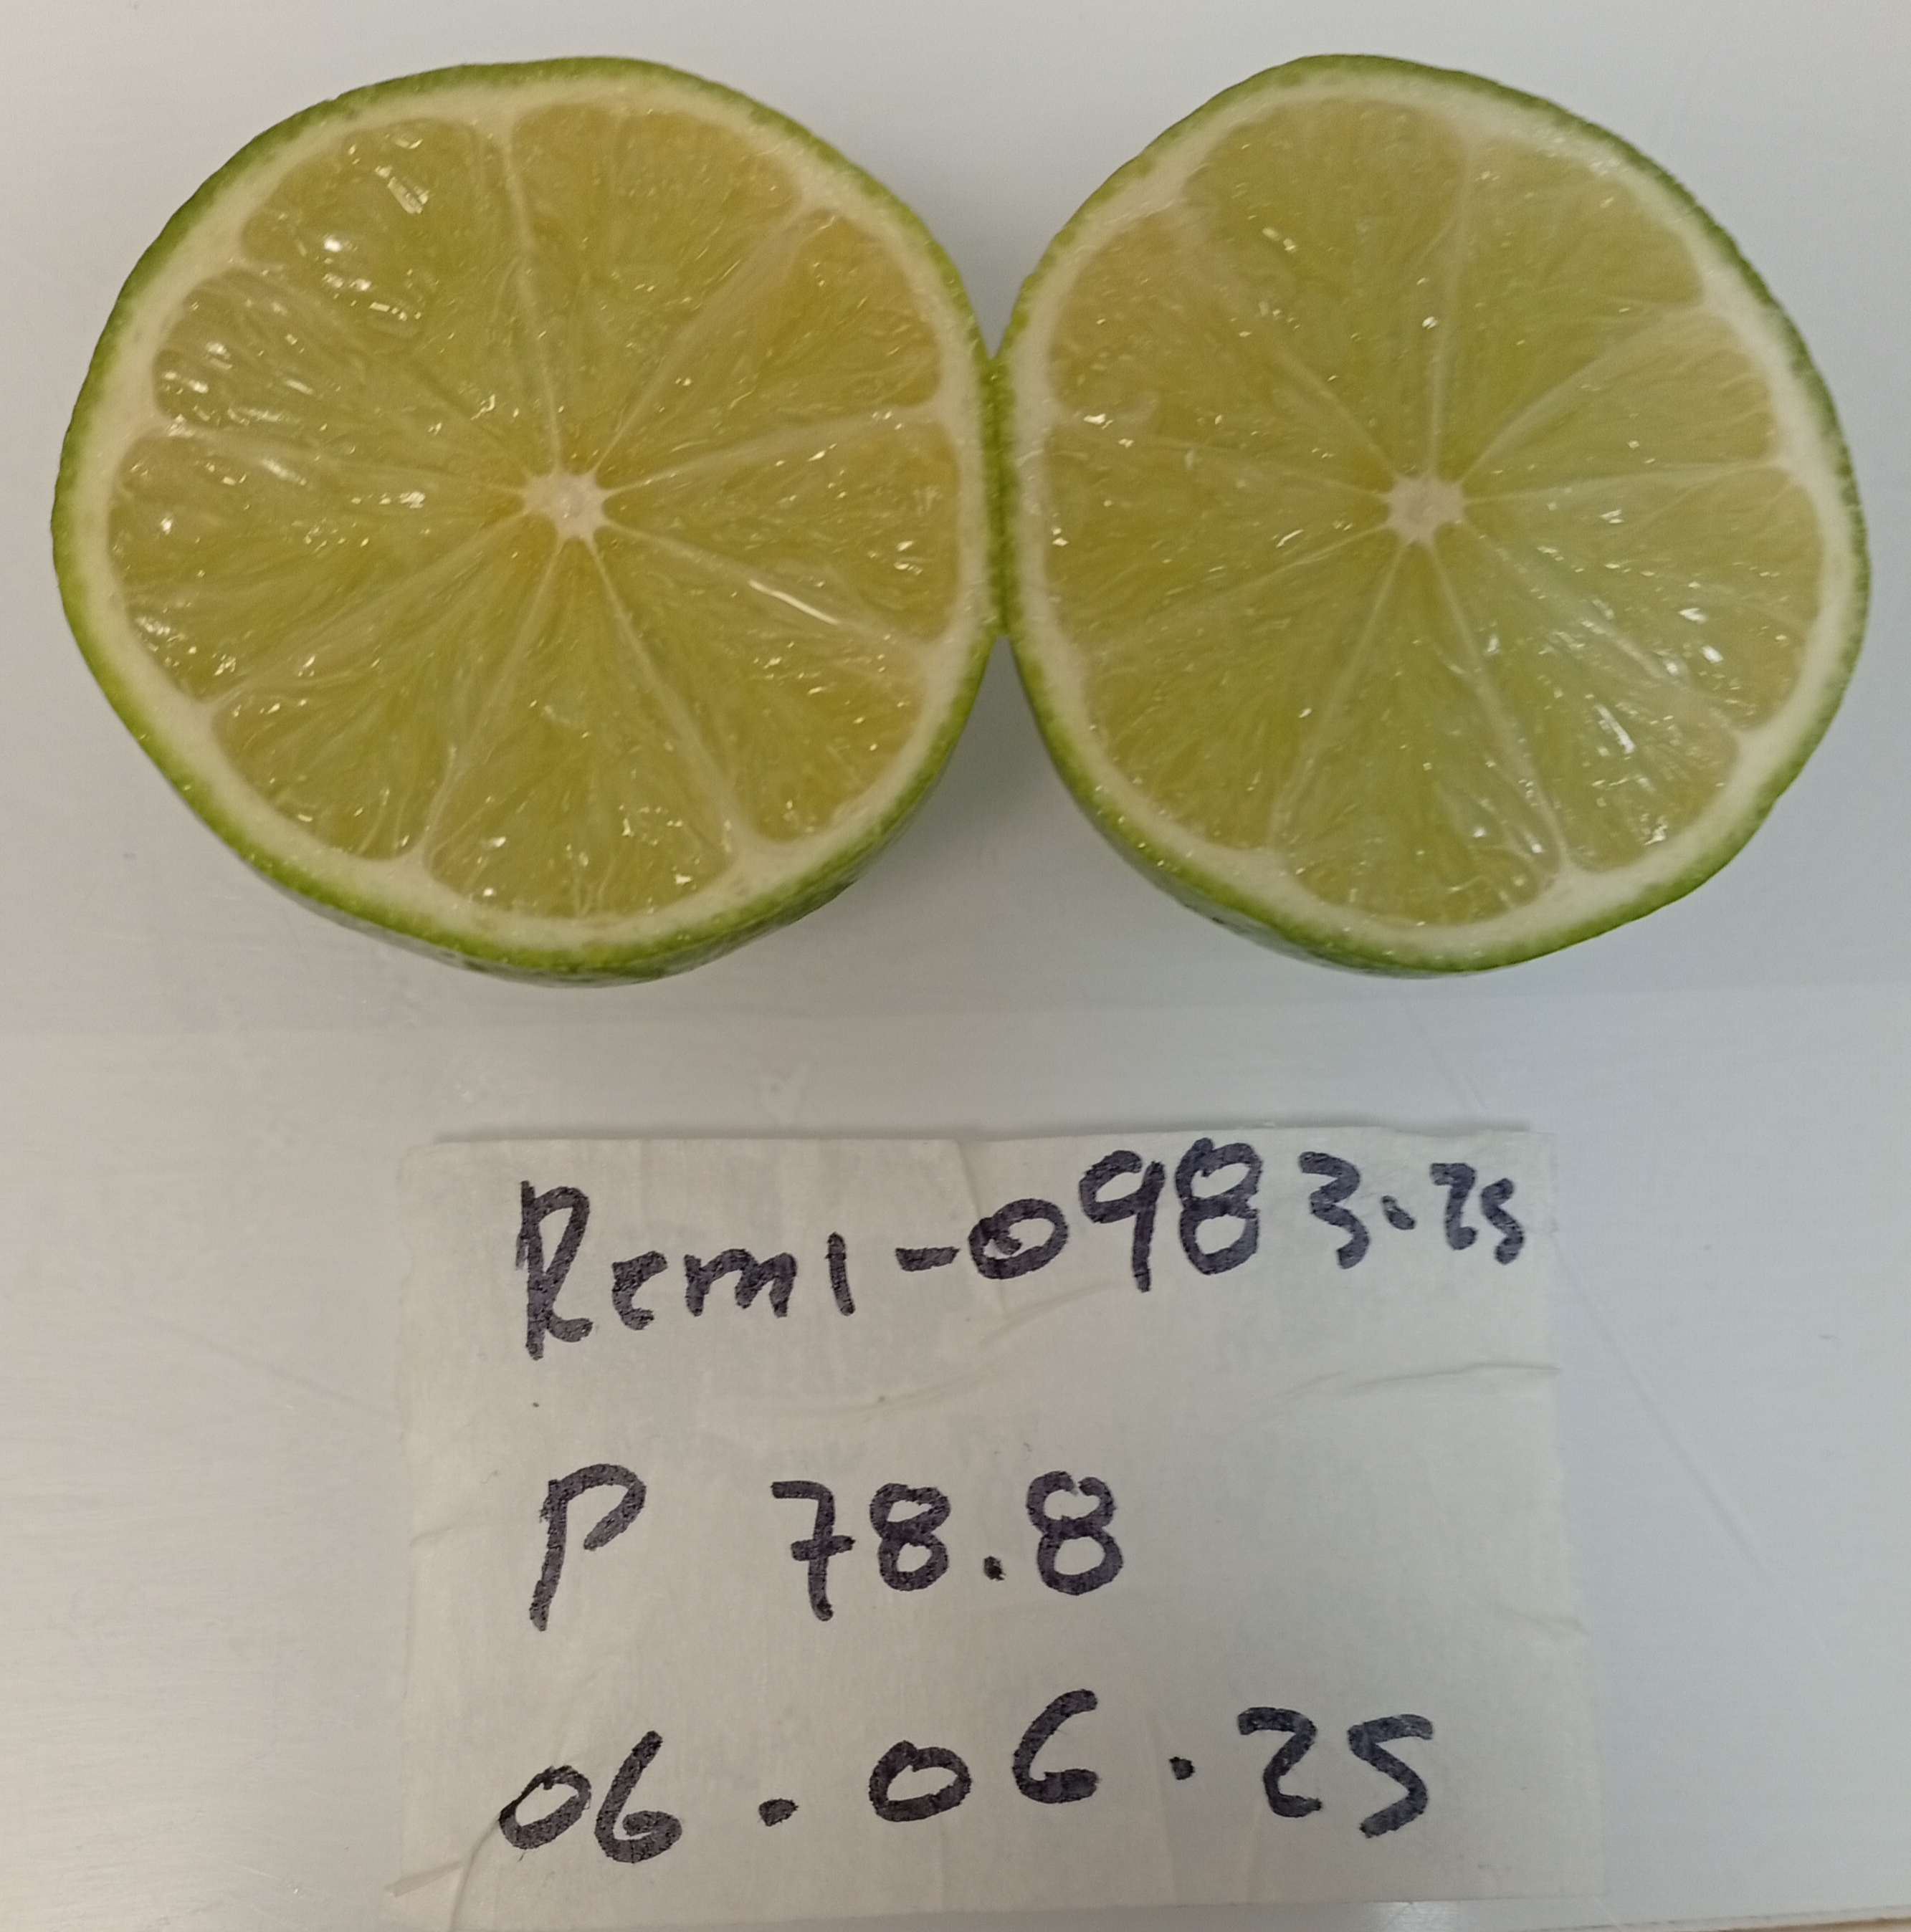 Remi-0983.25
P 78.8
06.06.25